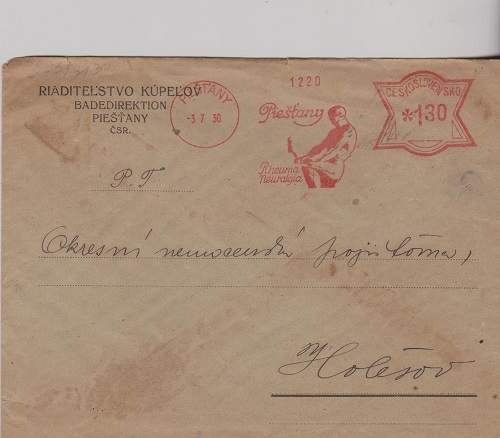 RIADITEĽSTVO KÚPEĽOV
BADEDIREKTION
PIEŠŤANY
ČSR.
PIEŠŤANY
-3 7 30
1220
Piešťany
Rheuma
Neuralgia
ČESKOSLOVENSKO
*1.30
P. T.
Okresní nemocenská pojišťovna,
Holešov